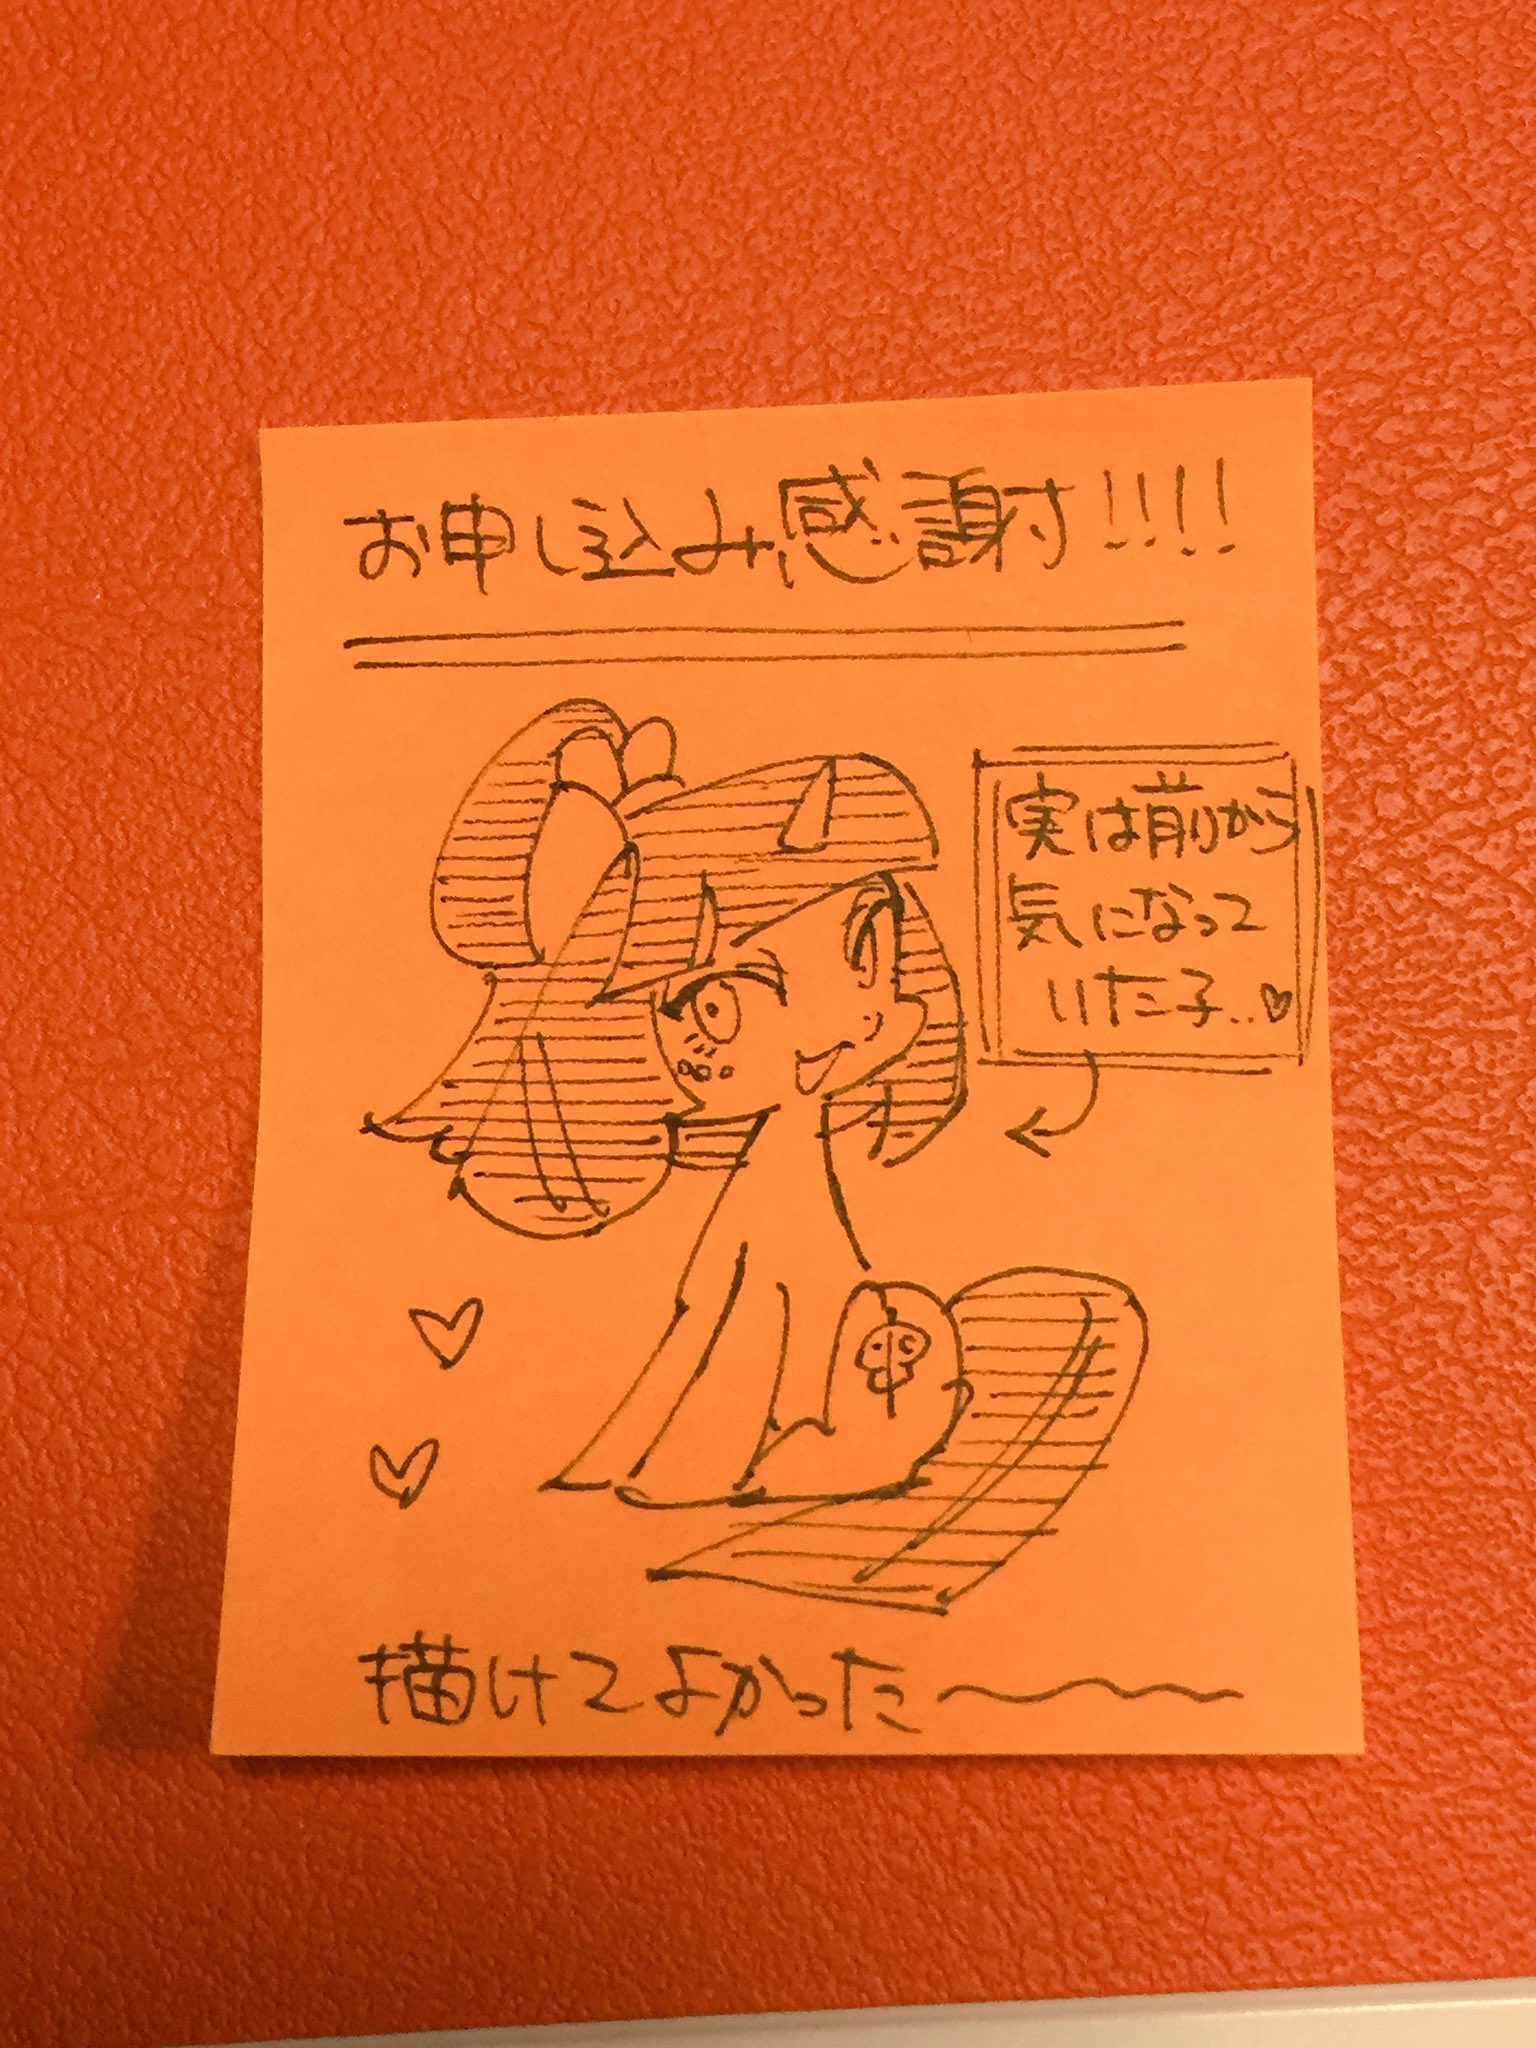 お申し込み感謝!!!!
実は前から
気になって
いた子..♡
描けてよかった〜